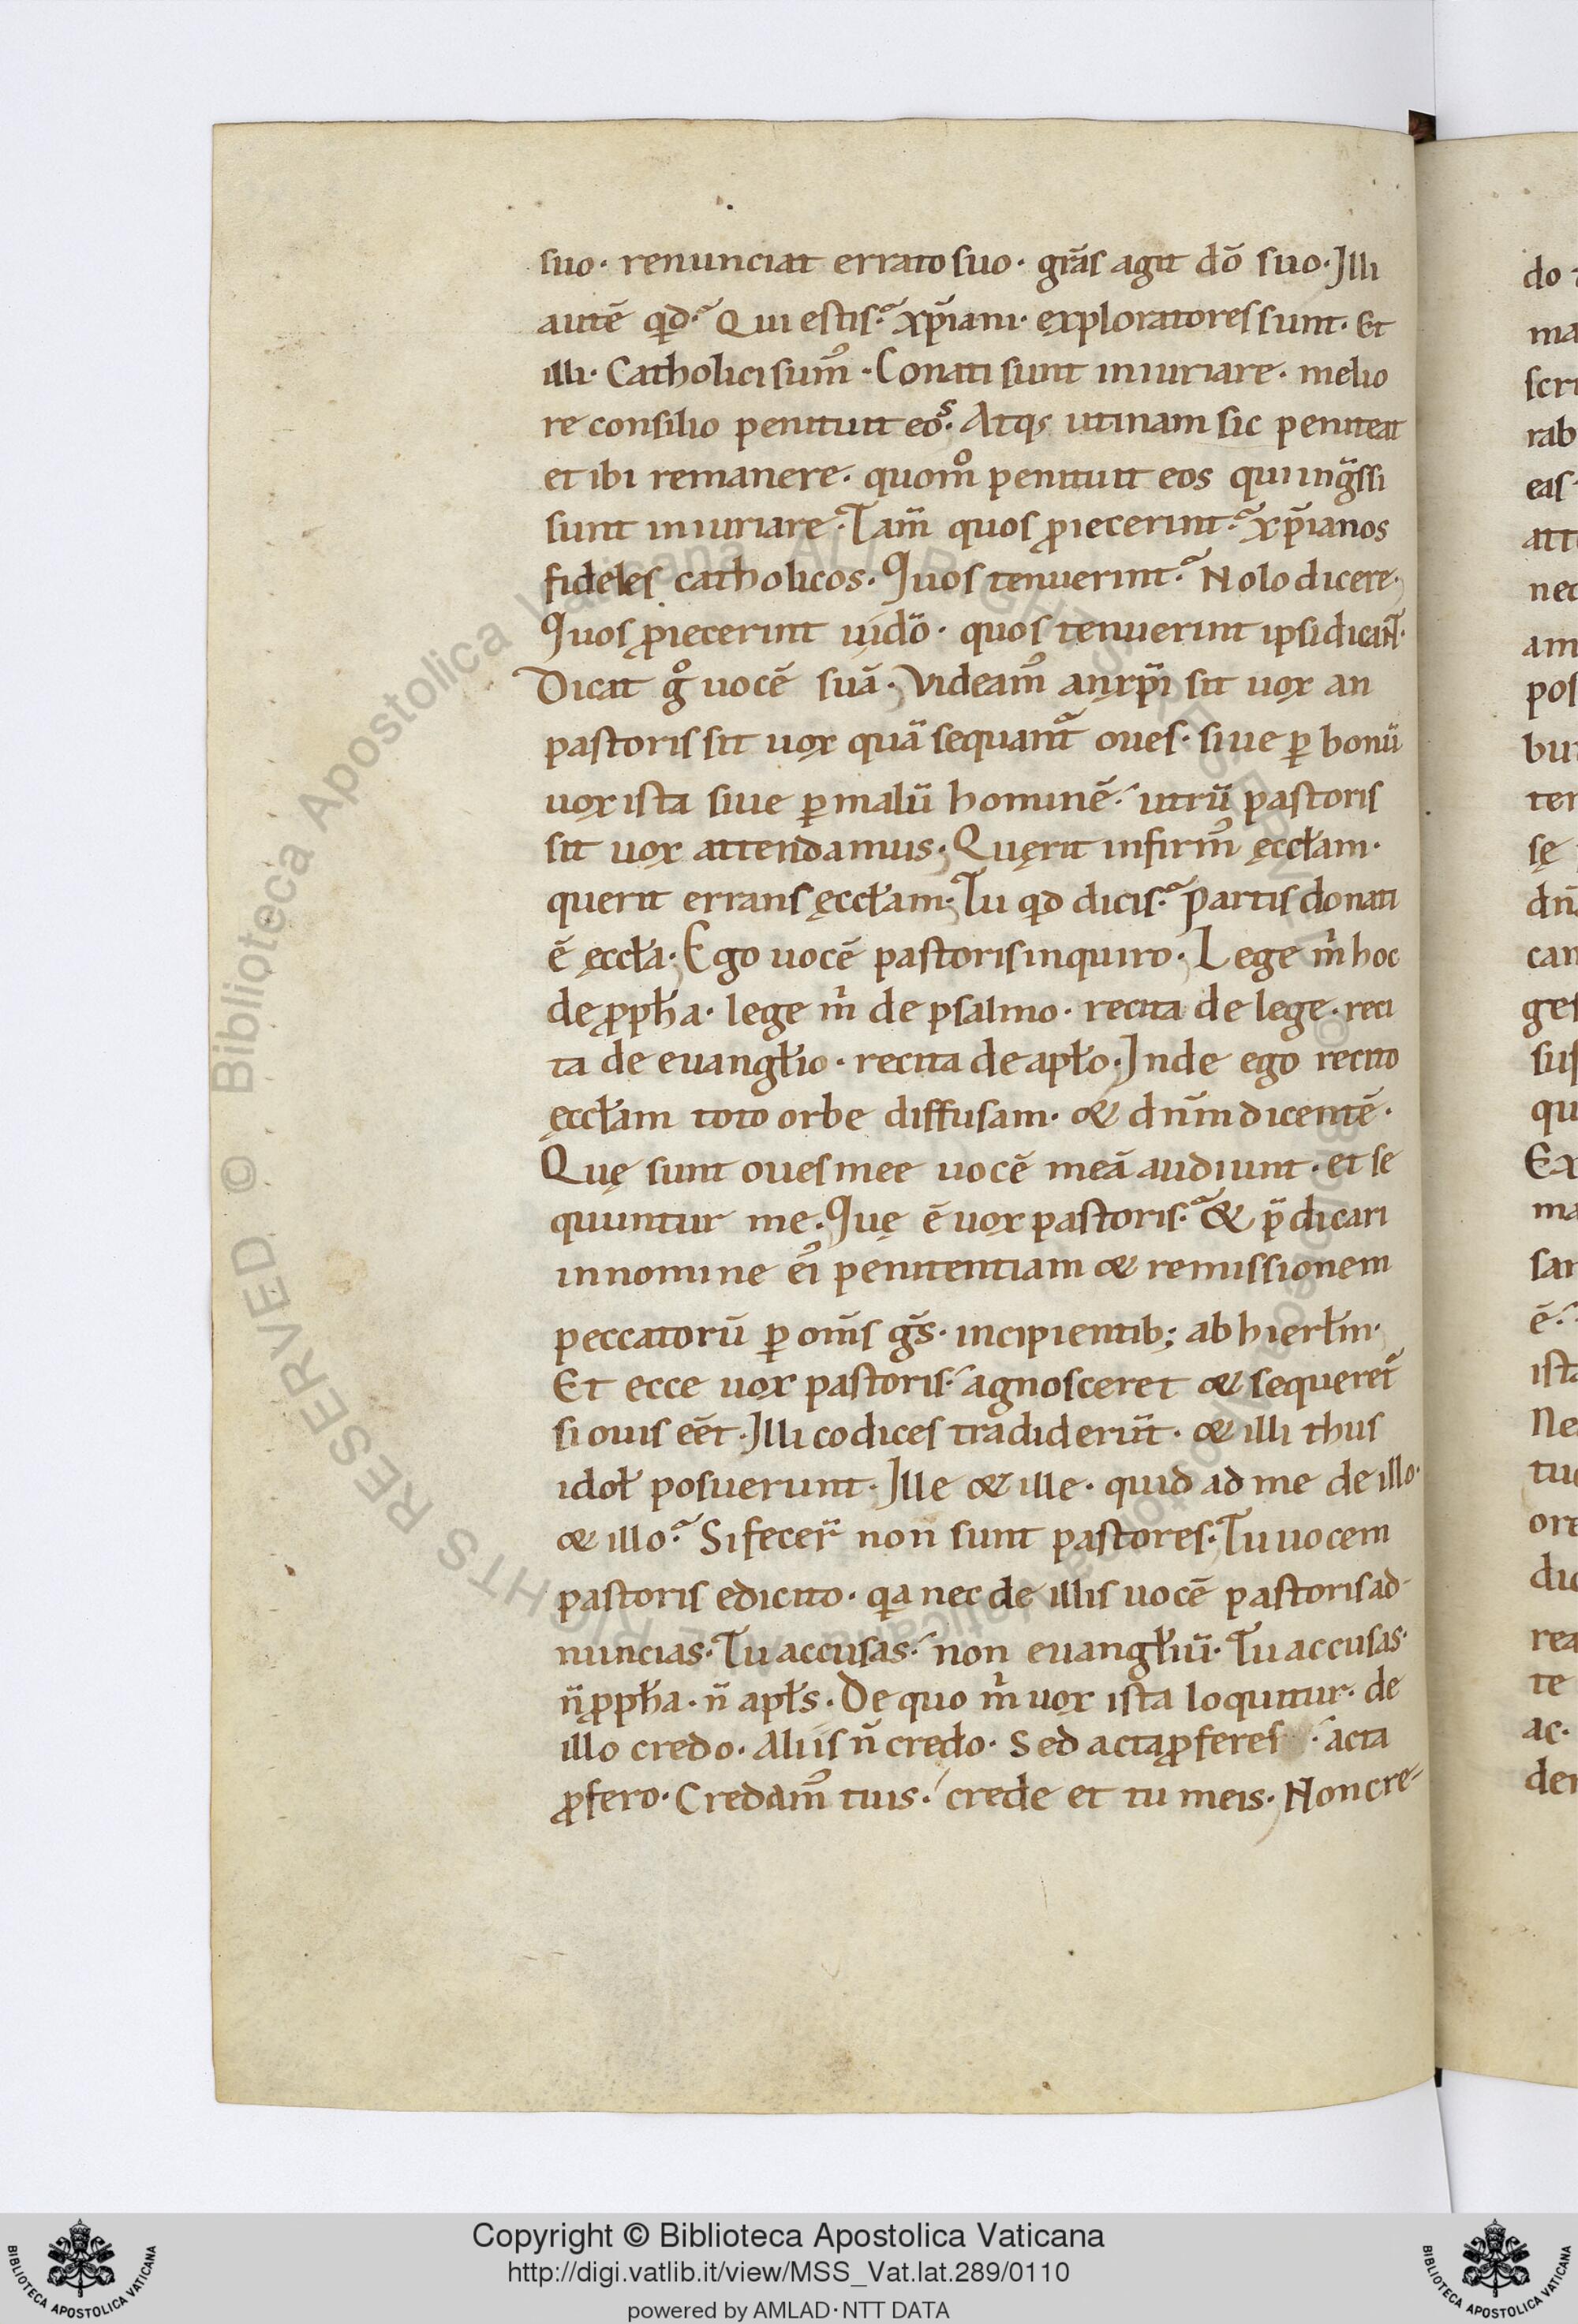 suo· renunciat errato suo· grãs agit dõ suo· Illi
autẽ qd· Qui estis· xp̃iani· exploratores sunt· Et
illi· Catholici sum᾿· Conati sunt iniuriare· melio
re consilio penituit eos· Atqs utinam sic peniteat
et ibi remanere· quom̊ penituit eos qui ing̃ssi
sunt iniuriare· Tam̃ quos ꝓiecerint· xp̃ianos
fideles catholicos· Quos tenuerint· Nolo dicere·
Quos ꝓiecerint uidõ· quos tenuerint ipsi dicaNT·
Dicat g̊ uocẽ suã· Videam᾿ an xp̃i sit uox an
pastoris sit uox quã sequant̃ oues· siue ꝑ bonũ
uox ista siue ꝑ malũ hominẽ· utrũ pastoris
sit uox attendamus· Quęrit infirm᾿ ęccłam·
querit errans ęccłam· Tu qd dicis· Partis donati
ẽ ęccła· Ego uocẽ pastoris inquiro· Lege m̃ hoc
de ꝓpħa· lege m̃ de psalmo· recita de lege· reci
ta de euangło· recita de apło· Inde ego recito
ęccłam toto orbe diffusam· & dnm̃ dicentẽ·
Quę sunt oues mee uocẽ meã audiunt· et se
quuntur me· Quę ẽ uox pastoris· & p̃dicari
in nomine ei᾿ penitentiam & remissionem
peccatorũ ꝑ om̃s g̃s· incipientib; ab hierłm·
Et ecce uox pastoris· agnosceret & sequeret̃
si ouis eẽt· Illi codices tradiderũt· & illi thus
idoł posuerunt· Ille & ille· quid ad me de illo·
& illo· Si fecer̃ non sunt pastores· Tu uocem
pastoris edicito· qa nec de illis uocẽ pastoris ad-
nuncias· Tu accusas· non euangłiũ· Tu accusas·
ñ ꝓpħa· ñ apłs· De quo m̃ uox ista loquitur· de
illo credo· Aliis ñ credo· Sed acta ꝓferes· acta
ꝓfero· Credam᾿ tuis· crede et tu meis· Non cre-
do
ma
scri
rab
eas
att
nec
am
pos
bu
ter
sę
dñ
can
ges
sus
qu
Ex
ma
san
ẽ·
ista
Ne
tu
ore
du
rea
te
ac·
der
© Biblioteca Apostolica Vaticana ALL RIGHTS RESERVED
BIBLIOTECA APOSTOLICA VATICANA
Copyright © Biblioteca Apostolica Vaticana
http://digi.vatlib.it/view/MSS_Vat.lat.289/0110
powered by AMLAD·NTT DATA
BIBLIOTECA APOSTOLICA VATICANA